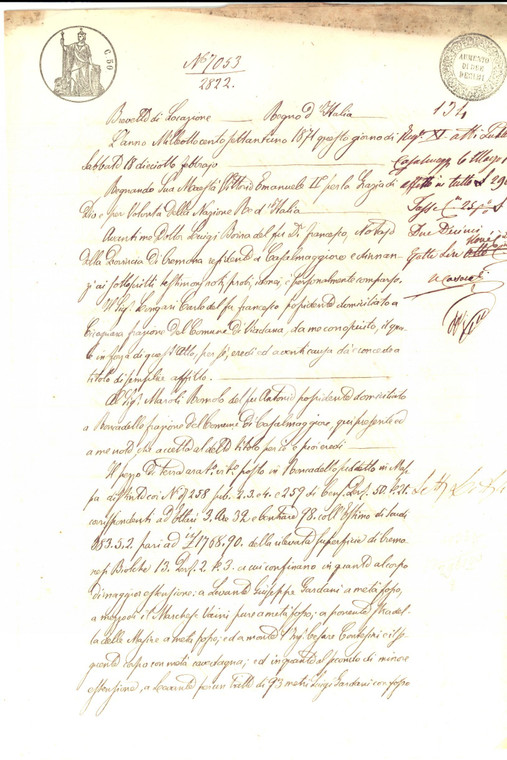 C. 50
AUMENTO
DI DUE
DECIMI
N° 7053
2822.
Brevetto di Locazione Regno d'Italia
L'anno Milleottocento settantuno 1871 questo giorno di
Sabbato 18 diciotto febbrajo.
Regnando Sua Maestà Vittorio Emanuele II° per la Grazia di
Dio e per Volontà della Nazione Re d'Italia
Avanti me Dottor Luigi Boina del fu Dr. Francesco, Notajo
della Provincia di Cremona residente in Casalmaggiore ed innan-
zi ai sottoscritti testimonj noti, probi, idonei, è personalmente comparso
Il Sig. Longari Carlo del fu Francesco possidente domiciliato a
Cicognara frazione del Comune di Viadana, da me conosciuto, il qua-
le in forza di quest'Atto, per sé, eredi ed aventi causa dà e concede a
titolo di semplice affitto
Al Sig. Maroli Romolo del fu Antonio possidente domiciliato
a Roncadello frazione del Comune di Casalmaggiore, qui presente ed
a me noto che accetta al detto titolo per sé e suoi eredi
Il pezzo di terra arat. vit. posto in Roncadello
pa distinto coi N. 258 sub. 2.3.4. e 259 di Cens. Pert. 50.
corrispondenti ad Ettari 3. Are 32 e centiare 98. coll'Estimo di Scudi
383.5.2. pari ad it£ 1768,90. della rilevata superficie di Cremo-
nesi Biolche 13. Pert. 2. a cui confinano in quanto al corpo
di maggior estensione; a Levante Giuseppe Gardani a metà fosso,
a mezzodì il Marchese Vaini pure a metà fosso; a ponente Stradel-
la delle Masive a metà fosso; ed a monte Cesare Contesini e il se-
guente corpo con metà cavedagna; ed in quanto al secondo di minore
estensione, a Levante per un Tratto di 93 metri Luigi Gardani con fosso
134
Casalmagg. 6 Marzo
Due Decimi